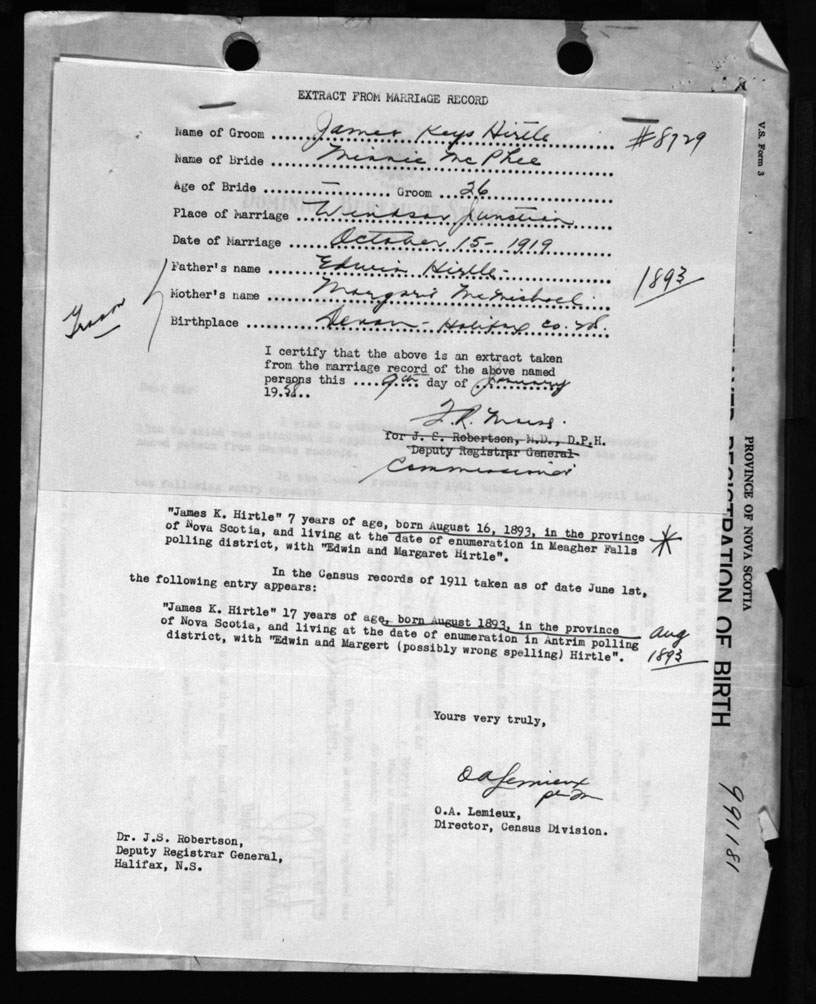 EXTRACT FROM MARRIAGE RECORD
#8729
Name of Groom .... James Keys Hirtle
Name of Bride .... Minnie McPhee
Age of Bride .... — Groom .. 26
Place of Marriage .. Windsor Junction
Date of Marriage .... October 15 - 1919
Father's name .... Edwin Hirtle -
1893
Mother's name .... Margaret McMichael
Groom
Birthplace .... Devon - Halifax Co.
I certify that the above is an extract taken
from the marriage record of the above named
persons this .... 9th day of January
19.
for J. S. Robertson, M.D., D.P.H.
Deputy Registrar General
Commissioner
"James K. Hirtle" 7 years of age, born August 16, 1893, in the province
of Nova Scotia, and living at the date of enumeration in Meagher Falls
polling district, with "Edwin and Margaret Hirtle".
In the Census records of 1911 taken as of date June 1st,
the following entry appears:
"James K. Hirtle" 17 years of age, born August 1893, in the province
of Nova Scotia, and living at the date of enumeration in Antrim polling
district, with "Edwin and Margert (possibly wrong spelling) Hirtle".
Aug
1893
Yours very truly,
OALemieux
O.A. Lemieux,
Director, Census Division.
Dr. J.S. Robertson,
Deputy Registrar General,
Halifax, N.S.
V.S. Form 3
PROVINCE OF NOVA SCOTIA
REGISTRATION OF BIRTH
991181